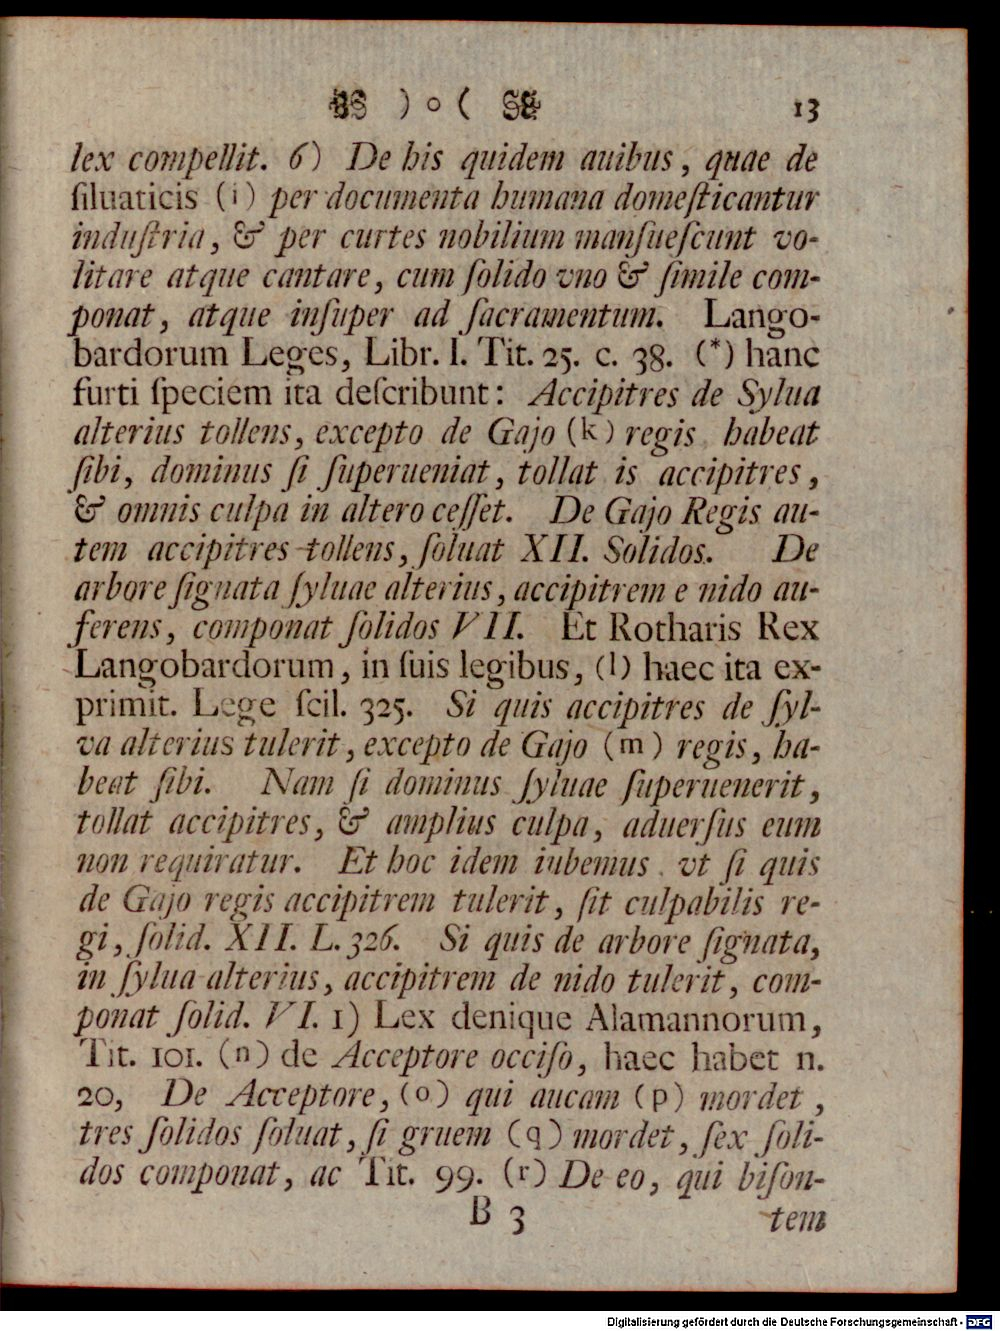 ) o ( 13
lex compellit. 6) De his quidem auibus, quae de
ſiluaticis (i) per documenta humana domeſticantur
induſtria, & per curtes nobilium manſueſcunt vo-
litare atque cantare, cum ſolido vno & ſimile com-
ponat, atque inſuper ad ſacramentum. Lango-
bardorum Leges, Libr. I. Tit. 25. c. 38. (*) hanc
furti ſpeciem ita deſcribunt: Accipitres de Sylua
alterius tollens, excepto de Gajo (k) regis habeat
ſibi, dominus ſi ſuperueniat, tollat is accipitres,
& omnis culpa in altero ceſſet. De Gajo Regis au-
tem accipitres tollens, ſoluat XII. Solidos. De
arbore ſignata ſyluae alterius, accipitrem e nido au-
ferens, componat ſolidos VII. Et Rotharis Rex
Langobardorum, in ſuis legibus, (l) haec ita ex-
primit. Lege ſcil. 325. Si quis accipitres de ſyl-
va alterius tulerit, excepto de Gajo (m) regis, ha-
beat ſibi. Nam ſi dominus ſyluae ſuperuenerit,
tollat accipitres, & amplius culpa, aduerſus eum
non requiratur. Et hoc idem iubemus. vt ſi quis
de Gajo regis accipitrem tulerit, ſit culpabilis re-
gi, ſolid. XII. L. 326. Si quis de arbore ſignata,
in ſylua alterius, accipitrem de nido tulerit, com-
ponat ſolid. VI. 1) Lex denique Alamannorum,
Tit. 101. (n) de Acceptore occiſo, haec habet n.
20, De Acceptore, (o) qui aucam (p) mordet,
tres ſolidos ſoluat, ſi gruem (q) mordet, ſex ſoli-
dos componat, ac Tit. 99. (r) De eo, qui biſon-
B 3 tem
Digitalisierung gefördert durch die Deutsche Forschungsgemeinschaft - DFG